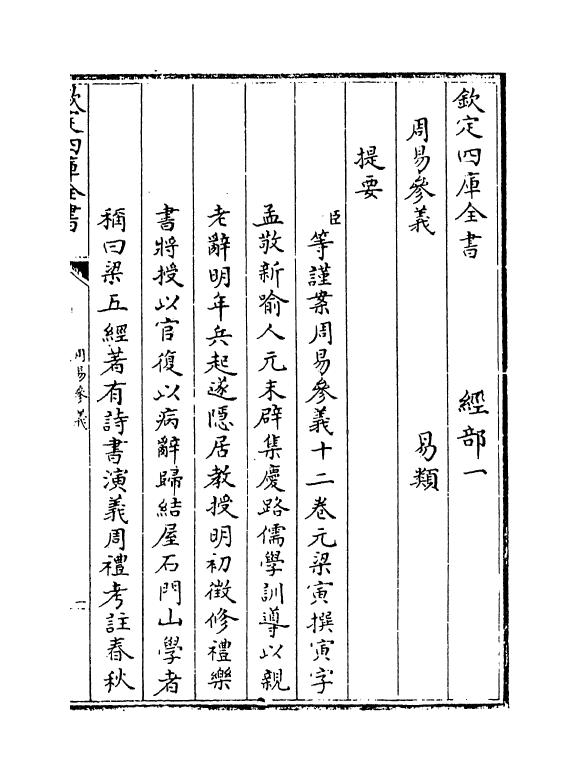 欽定四庫全書　經部一
周易參義　易類
提要
臣等謹案周易參義十二卷元梁寅撰寅字
孟敬新喻人元末辟集慶路儒學訓導以親
老辭明年兵起遂隱居教授明初徵修禮樂
書將授以官復以病辭歸結屋石門山學者
稱曰梁五經著有詩書演義周禮考註春秋
欽定四庫全書
周易參義